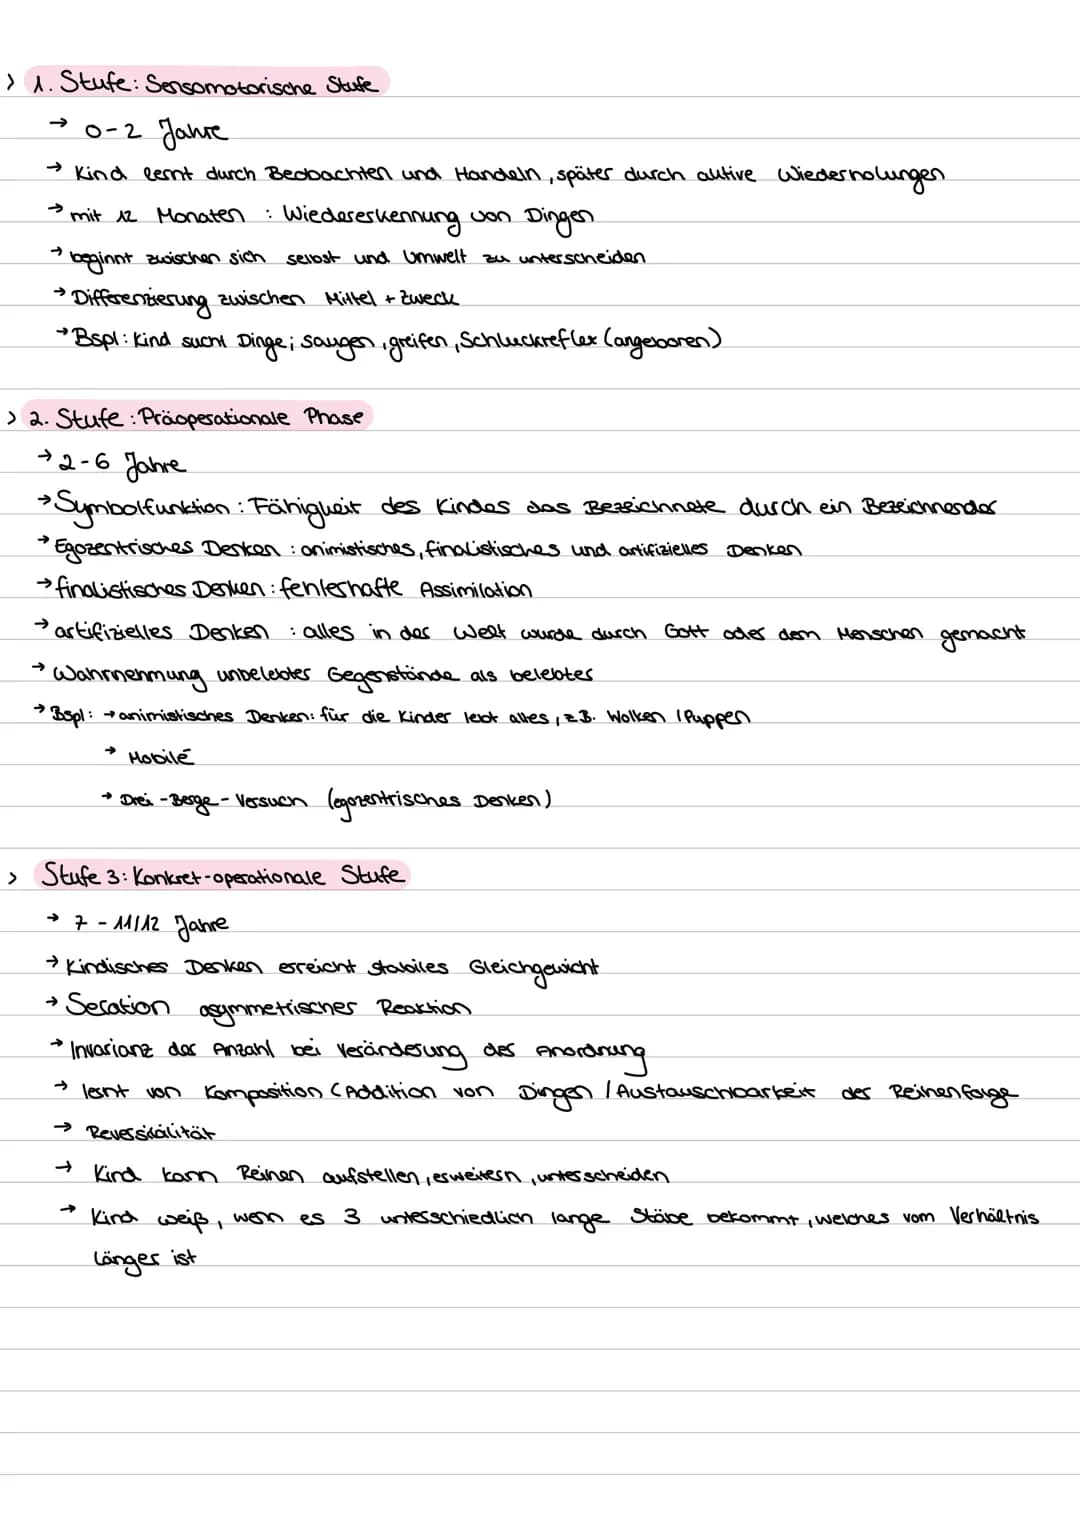 > 1. Stufe: Sensomotorische Stufe
→ 0-2 Jahre
→ Kind lernt durch Beobachten und Handeln, später durch aktive Wiederholungen
→ mit 12 Monaten : Wiedererkennung von Dingen
→ beginnt zwischen sich selbst und Umwelt zu unterscheiden
→ Differenzierung zwischen Mittel + Zweck
→ Bspl: Kind sucht Dinge; saugen, greifen, Schluckreflex (angeboren)
> 2. Stufe: Präoperationale Phase
→ 2-6 Jahre
→ Symbolfunktion: Fähigkeit des Kindes das Bezeichnete durch ein Bezeichnendes
→ Egozentrisches Denken: animistisches, finalistisches und artifizielles Denken
→ finalistisches Denken: fehlerhafte Assimilation
→ artifizielles Denken : alles in der Welt wurde durch Gott oder dem Menschen gemacht
→ Wahrnehmung unbelebter Gegenstände als belebtes
→ Bspl: → animistisches Denken: für die Kinder lebt alles, z.B. Wolken / Puppen
→ Mobilé
→ Drei-Berge-Versuch (egozentrisches Denken)
> Stufe 3: Konkret-operationale Stufe
→ 7 - 11/12 Jahre
→ Kindisches Denken erreicht stabiles Gleichgewicht
→ Seration asymmetrischer Reaktion
→ Invarianz der Anzahl bei Veränderung der Anordnung
→ lernt von Komposition (Addition von Dingen / Austauschbarkeit der Reihenfolge
→ Reversibilität
→ Kind kann Reihen aufstellen, erweitern, unterscheiden
→ Kind weiß, wenn es 3 unterschiedlich lange Stäbe bekommt, welches vom Verhältnis
länger ist